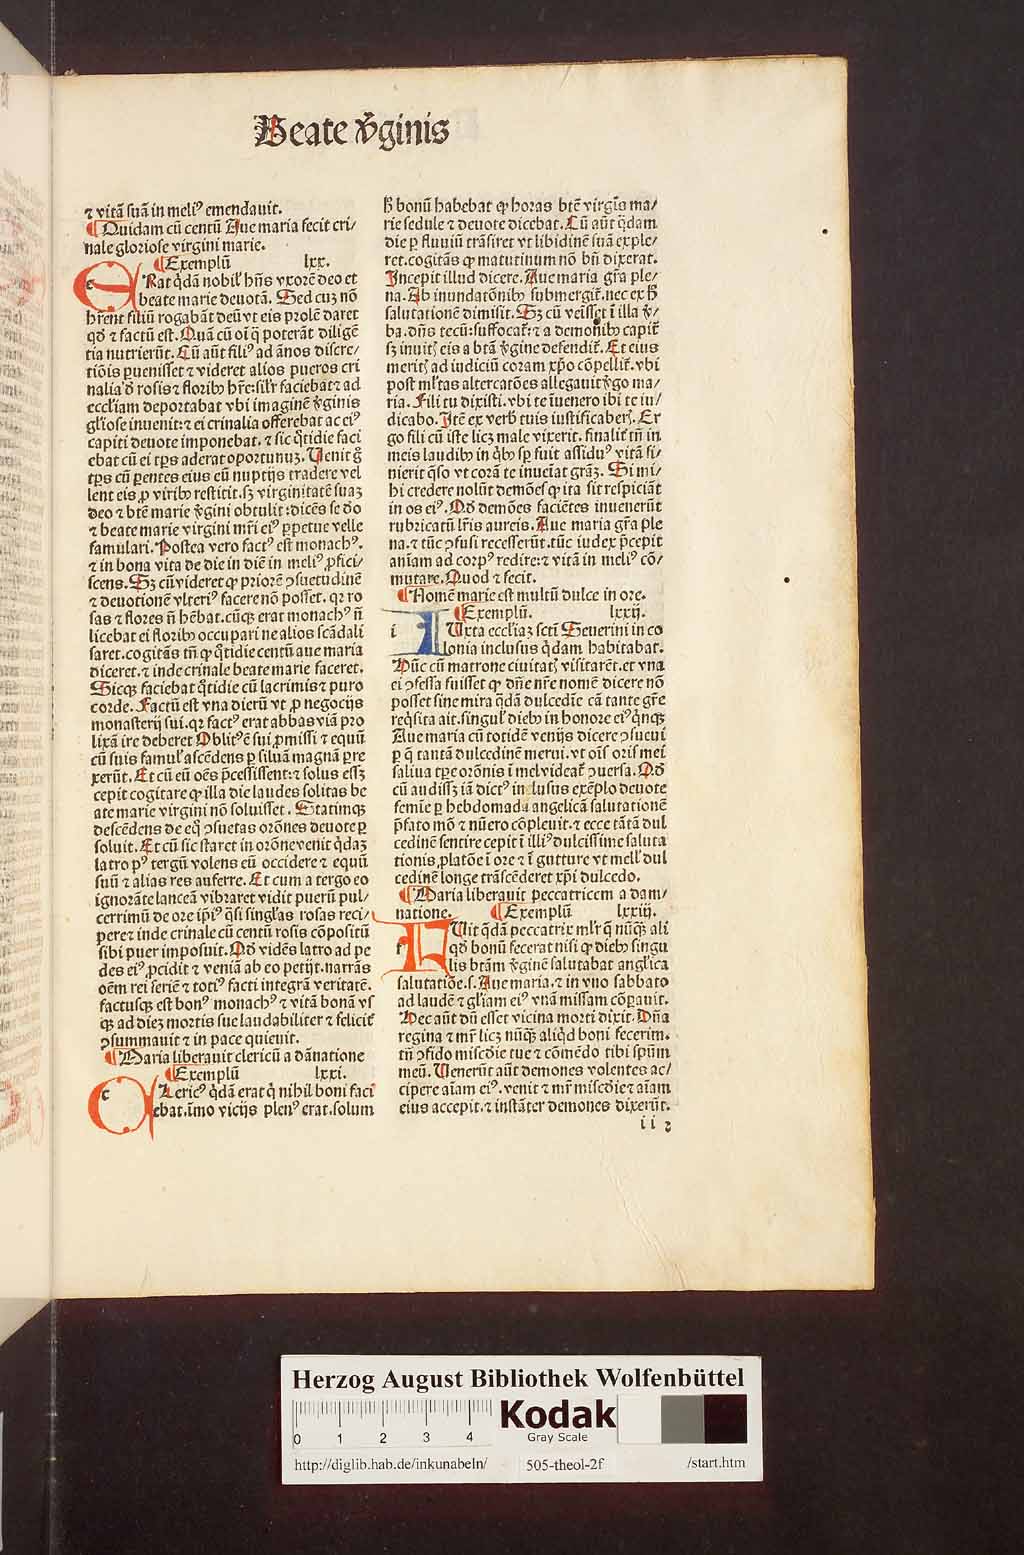 Beate v̾ginis
⁊ vitā suā in meliꝰ emendauit.
¶ Quidam cū centū Aue maria fecit cri/
nale gloriose virgini marie.
¶ Exemplū lxx.
e Rat q̇dā nobil' hn̄s vxorē deo et
beate marie deuotā. Sed cuꝫ nō
hr̄ent filiū rogabāt deū vt eis prolē daret
qd̄ ⁊ factū est. Quā cū oī q̄ poterāt diligē
tia nutrierūt. Cū aūt filiꝰ ad ānos discre/
tiōis ꝑuenisset ⁊ videret alios pueros cri
nalia d̄ rosis ⁊ floribꝰ hr̄e: sil'r faciebat ⁊ ad
eccl'iam deportabat vbi imaginē v̾ginis
gl'iose inuenit: ⁊ ei crinalia offerebat ac eiꝰ
capiti deuote imponebat. ⁊ sic q̇tidie faci
ebat cū ei tp̄s aderat oportunuꝫ. Uenit g̊
tp̄s cū ꝑentes eius eū nuptijs tradere vel
lent eis ꝓ viribꝰ restitit. sꝫ virginitatē suaꝫ
deo ⁊ btē marie v̾gini obtulit: dicēs se do
⁊ beate marie virgini mr̄i eiꝰ ꝑpetue velle
famulari. Postea vero factꝰ est monachꝰ.
⁊ in bona vita de die in diē in meliꝰ ꝓfici/
scens. Sꝫ cū videret ꝙ priorē ↄsuetudinē
⁊ deuotionē vlteriꝰ facere nō posset. qꝛ ro
sas ⁊ flores n̄ hēbat. cūqꝫ erat monachꝰ n̄
licebat ei floribꝰ occupari ne alios scādali
saret. cogitās tn̄ ꝙ q̇tidie centū aue maria
diceret. ⁊ inde crinale beate marie faceret.
Sicqꝫ faciebat q̇tidie cū lacrimis ⁊ puro
corde. Factū est vna dierū vt ꝓ negocijs
monasterij sui. qꝛ factꝰ erat abbas viā pro
lixā ire deberet Oblitꝰ ē sui ꝓmissi ⁊ equū
cū suis famul' ascēdens ꝑ siluā magnā ꝑre
xerūt. Et cū eū oēs p̄cessissent: ⁊ solus essꝫ
cepit cogitare ꝙ illa die laudes solitas be
ate marie virgini nō soluisset. Statimqꝫ
descēdens de eq̊ ↄsuetas orōnes deuote ꝑ
soluit. Et cū sic staret in orōne venit q̇daꝫ
latro pꝰ tergū volens eū occidere ⁊ equū
suū ⁊ alias res auferre. Et cum a tergo eo
ignorāte lanceā vibraret vidit puerū pul/
cerrimū de ore ip̄iꝰ q̄si singl'as rosas reci/
pere ⁊ inde crinale cū centū rosis cōpositū
sibi puer imposuit. Qd̄ vidēs latro ad pe
des eiꝰ ꝓcidit ⁊ veniā ab eo petijt. narrās
oēm rei seriē ⁊ totiꝰ facti integrā veritatē.
factusqꝫ est bonꝰ monachꝰ ⁊ vitā bonā vs
qꝫ ad dieꝫ mortis sue laudabiliter ⁊ felicit̄
ↄsummauit ⁊ in pace quieuit.
¶ Maria liberauit clericū a dānatione
¶ Exemplū lxxi.
c Lericꝰ q̇dā erat q̇ nihil boni faci
ebat. īmo vicijs plenꝰ erat. solum
h̄ bonū habebat ꝙ horas btē virgīs ma/
rie sedule ⁊ deuote dicebat. Cū aūt q̇dam
die ꝑ fluuiū trāsiret vt libidinē suā exple/
ret. cogitās ꝙ matutinum nō bn̄ dixerat.
Incepit illud dicere. Aue maria gr̄a ple/
na. Ab inundatōnibꝰ submergit̄. nec ex h̄
salutationē dimisit. Sꝫ cū veīsset ī illa v̾/
ba. dn̄s tecū: suffocat̄: ⁊ a demonibꝰ capit̄
sꝫ inuitꝭ eis a btā v̾gine defendit̄. Et eius
meritꝭ ad iudiciū coram xp̄o cōpellit̄. vbi
post ml'tas altercatōes allegauit v̾go ma/
ria. Fili tu dixisti. vbi te īuenero ibi te iu/
dicabo. Itē ex verbꝭ tuis iustificaberꝭ. Er
go fili cū iste licꝫ male vixerit. finalit̄ tn̄ in
meis laudibꝰ in q̇bꝰ sp̄ fuit assiduꝰ vitā fi/
nierit q̄so vt corā te inueīat grāꝫ. Si mi/
hi credere nolūt demōes ꝙ ita sit respiciāt
in os eiꝰ. Qd̄ demōes faciētes inuenerūt
rubricatū lr̄is aureis. Aue maria gr̄a ple
na. ⁊ tūc ↄfusi recesserūt. tūc iudex p̄cepit
aniām ad corpꝰ redire: ⁊ vitā in meliꝰ cō/
mutare. Quod ⁊ fecit.
¶ Nomē marie est multū dulce in ore.
¶ Exemplū. lxxij.
i Uxta eccl'iaꝫ scti Seuerini in co
lonia inclusus q̇dam habitabat.
Hūc cū matrone ciuitatꝭ visitarēt. et vna
ei ↄfessa fuisset ꝙ dn̄e nr̄e nomē dicere nō
posset sine mira q̇dā dulcedīe cā tante gr̄e
req̇sita ait. singul' diebꝰ in honore eiꝰ q̇nqꝫ
Aue maria cū totidē venijs dicere ↄsueui
ꝑ q̄ tantā dulcedinē merui. vt oīs oris mei
saliua tꝑe orōnis ī mel videat̄ ↄuersa. Qd̄
cū audissꝫ iā dictꝰ inclusus exēplo deuote
femīe ꝑ hebdomadā angelicā salutationē
p̄fato mō ⁊ nūero cōpleuit. ⁊ ecce tātā dul
cedinē sentire cepit ī illiꝰ dulcissime saluta
tionis ꝓlatōe ī ore ⁊ ī gutture vt mell' dul
cedinē longe trāscēderet xp̄i dulcedo.
¶ Maria liberauit peccatricem a dam/
natione. ¶ Exemplū lxxiij.
f Uit q̇dā peccatrix ml'r q̄ nūqꝫ ali
qd̄ bonū fecerat nisi ꝙ diebꝰ singu
lis btām v̾ginē salutabat angl'ica
salutatiōe. s. Aue maria. ⁊ in vno sabbato
ad laudē ⁊ gl'iam eiꝰ vnā missam cōparauit.
Hec aūt dū esset vicina morti dixit. Dn̄a
regina ⁊ mr̄ licꝫ nūqꝫ aliq̇d boni fecerim.
tn̄ ↄfido miscdie tue ⁊ cōmēdo tibi spūm
meū. Uenerūt aūt demones volentes ac/
cipere aīam eiꝰ. venit ⁊ mr̄ miscdie ⁊ aīam
eius accepit. ⁊ instāter demones dixerūt.
ii 2
Herzog August Bibliothek Wolfenbüttel
0 1 2 3 4
Kodak
Gray Scale
http://diglib.hab.de/inkunabeln/ 505-theol-2f /start.htm